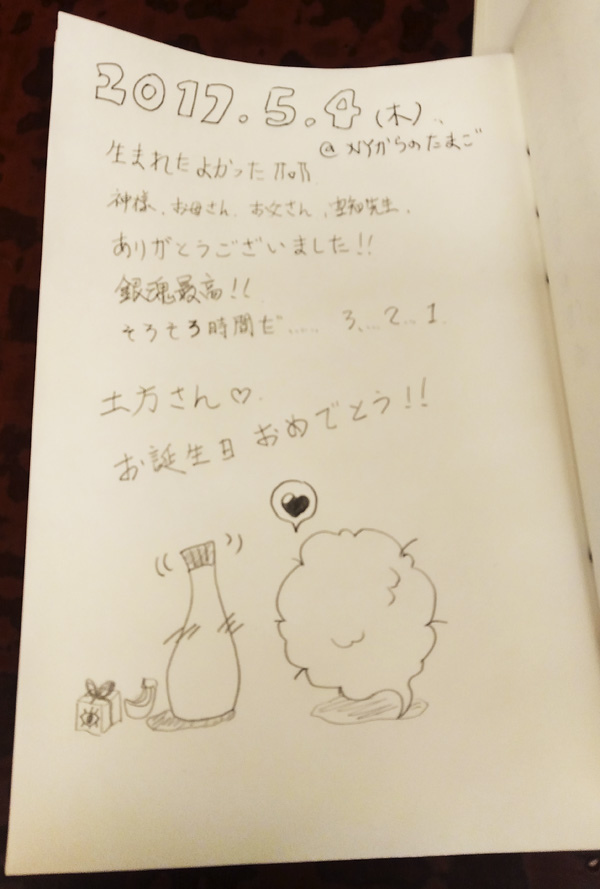 2017.5.4(木)、
@ NYからのたまご
生まれたよかった
神様、お母さん、お父さん、空知先生、
ありがとうございました!!
銀魂最高!!
そろそろ時間だ...... 3....2...1.
土方さん♡.
お誕生日おめでとう!!